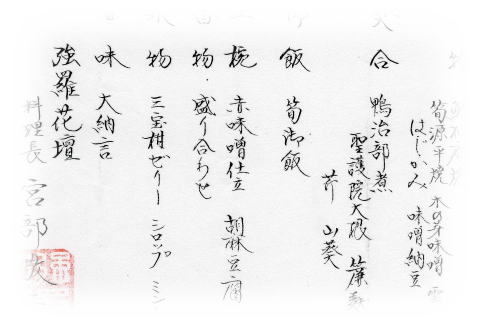 筍源平焼 木の芽味噌
はじかみ 味噌納豆
合 鴨治部煮
聖護院大根
芹 山葵
飯 筍御飯
椀 赤味噌仕立 胡麻豆腐
物・盛り合わせ
物 三宝柑ゼリー シロップ ミン
味 大納言
強羅花壇
料理長 宮部